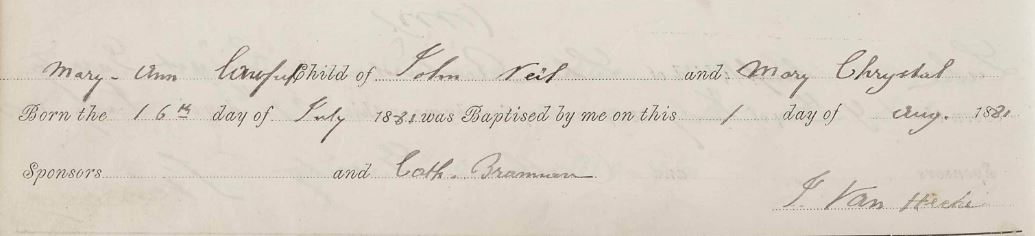 Mary-Ann Child of John Neil and Mary Chrystal
Born the 16th day of July 1881 was Baptised by me on this 1 day of Aug. 1881
Sponsors and Cath. Brannan
J. Van Hecke